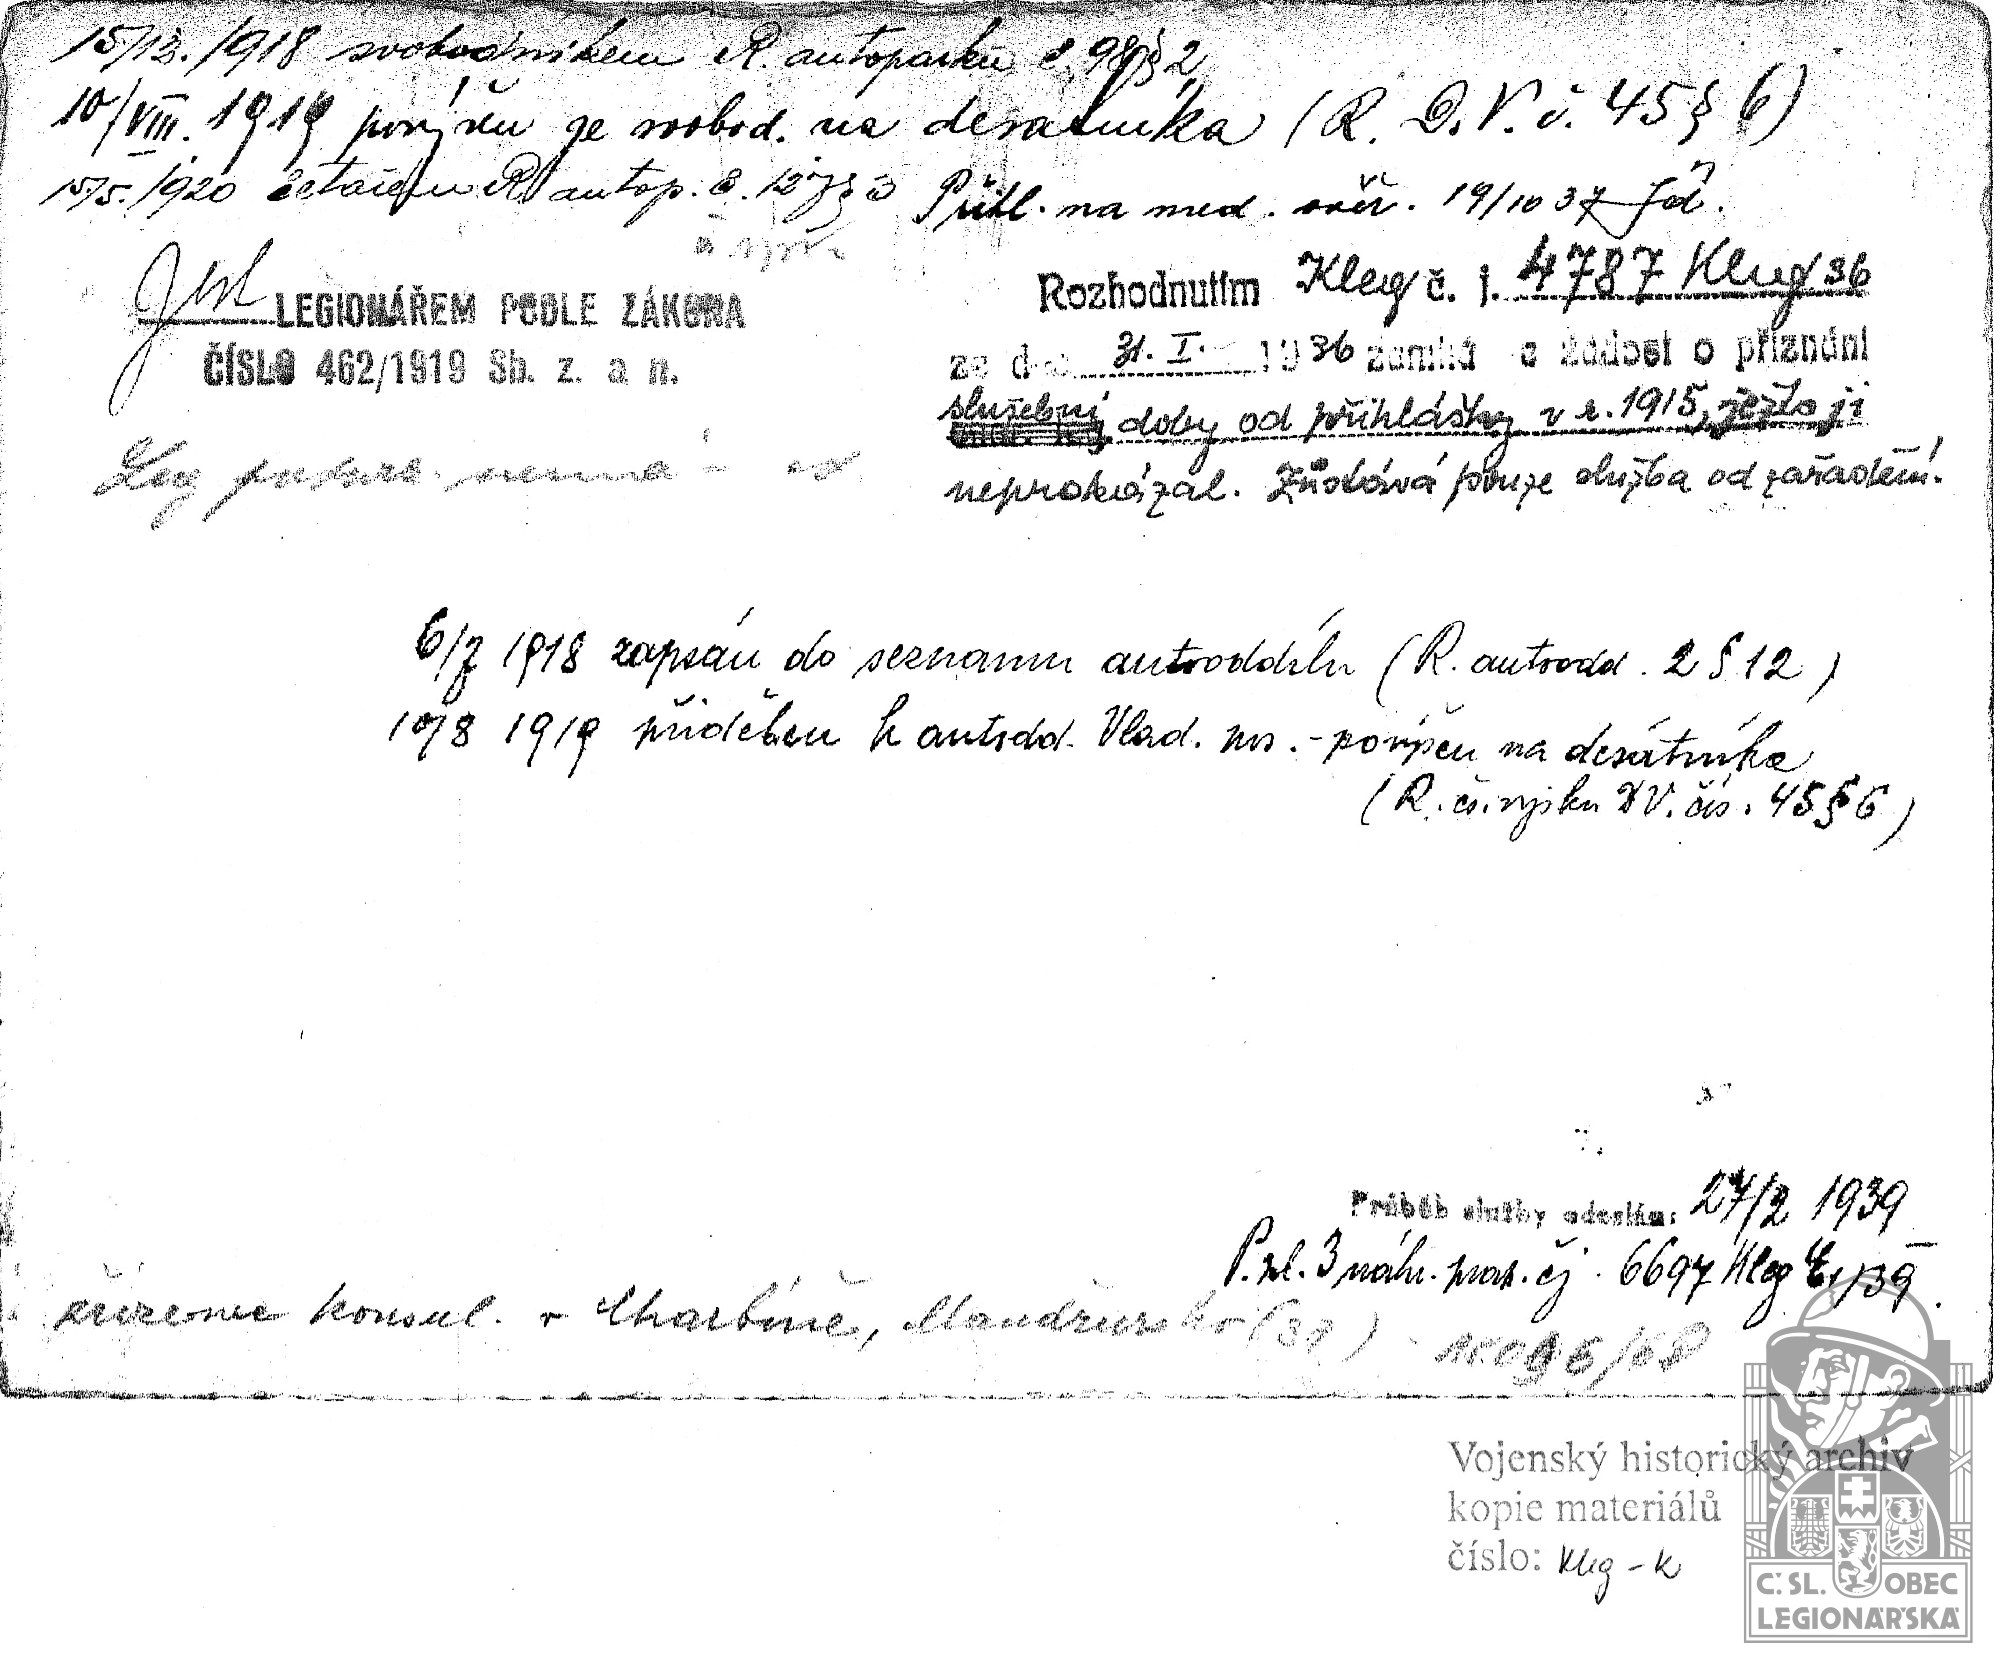 15/12. 1918 svobodníkem R. autoparku č. 98 § 2
10/VIII. 1919 povýšen ze svobod. na desátníka (R. D.V. č. 45 § 6)
15/5. 1920 četařem R. autop. č. 127 § 3
Přihl. na med. 19/10 37
Jest LEGIONÁŘEM PODLE ZÁKONA
ČÍSLO 462/1919 Sb. z. a n.
Leg nemá
Rozhodnutím Kleg č. j. 4787 Kleg 36
ze dne 31. I. 1936 zamítá se žádost o přiznání
služební doby od přihlášky v r. 1915, ježto ji
neprokázal. Zůstává pouze služba od zařadění.
6/7 1918 zapsán do seznamu autooddílu (R. autoodd. 2 § 12)
10/8 1919 přidělen k autoodd. Vlad. povýšen na desátníka
(R. čs. vojsku DV. čís. 45 § 6)
Průběh služby odeslán: 27/2 1939
P. pl. 3 náhr. prap. čj. 6697 Kleg 39.
zřízenec konsul. v Charbině, Mandžursko (38)
Vojenský historický archiv
kopie materiálů
číslo: Kleg - k
Č. SL. OBEC
LEGIONÁŘSKÁ